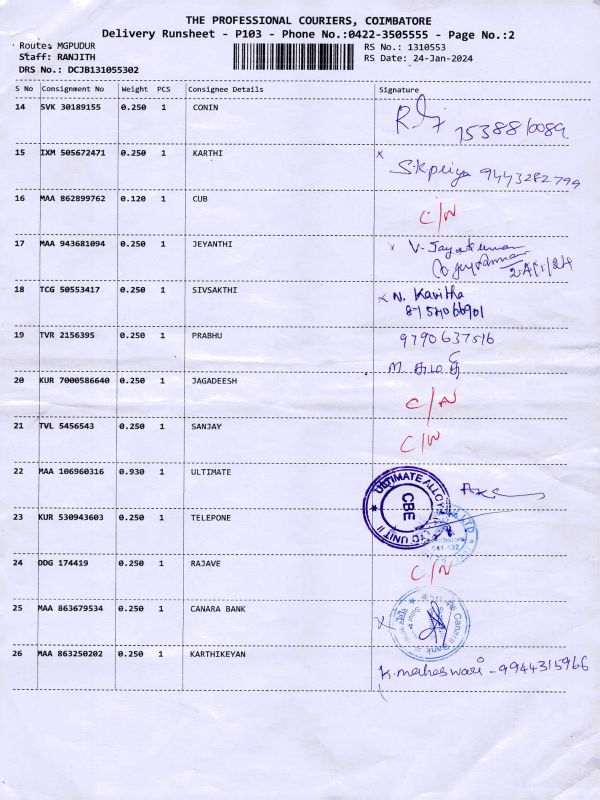 THE PROFESSIONAL COURIERS, COIMBATORE
Delivery Runsheet - P103 - Phone No.:0422-3505555 - Page No.:2
Route: MGPUDUR
RS No.: 1310553
Staff: RANJITH
RS Date: 24-Jan-2024
DRS No.: DCJB131055302
S No Consignment No Weight PCS Consignee Details Signature
14 SVK 30189155 0.250 1 CONIN
15 IXM 505672471 0.250 1 KARTHI x S.Kpriya 9443282799
16 MAA 862899762 0.120 1 CUB C/N
17 MAA 943681094 0.250 1 JEYANTHI x V. Jayakumar
24/1/24
18 TCG 50553417 0.250 1 SIVSAKTHI x N. Kavitha
19 TVR 2156395 0.250 1 PRABHU 9790637516
20 KUR 7000586640 0.250 1 JAGADEESH C/N
21 TVL 5456543 0.250 1 SANJAY C/N
22 MAA 106960316 0.930 1 ULTIMATE
ULTIMATE ALLOYS
CBE
UNIT II
23 KUR 530943603 0.250 1 TELEPONE
24 DDG 174419 0.250 1 RAJAVE C/N
25 MAA 863679534 0.250 1 CANARA BANK x
Canara Bank
26 MAA 863250202 0.250 1 KARTHIKEYAN K.maheswari - 9944315966